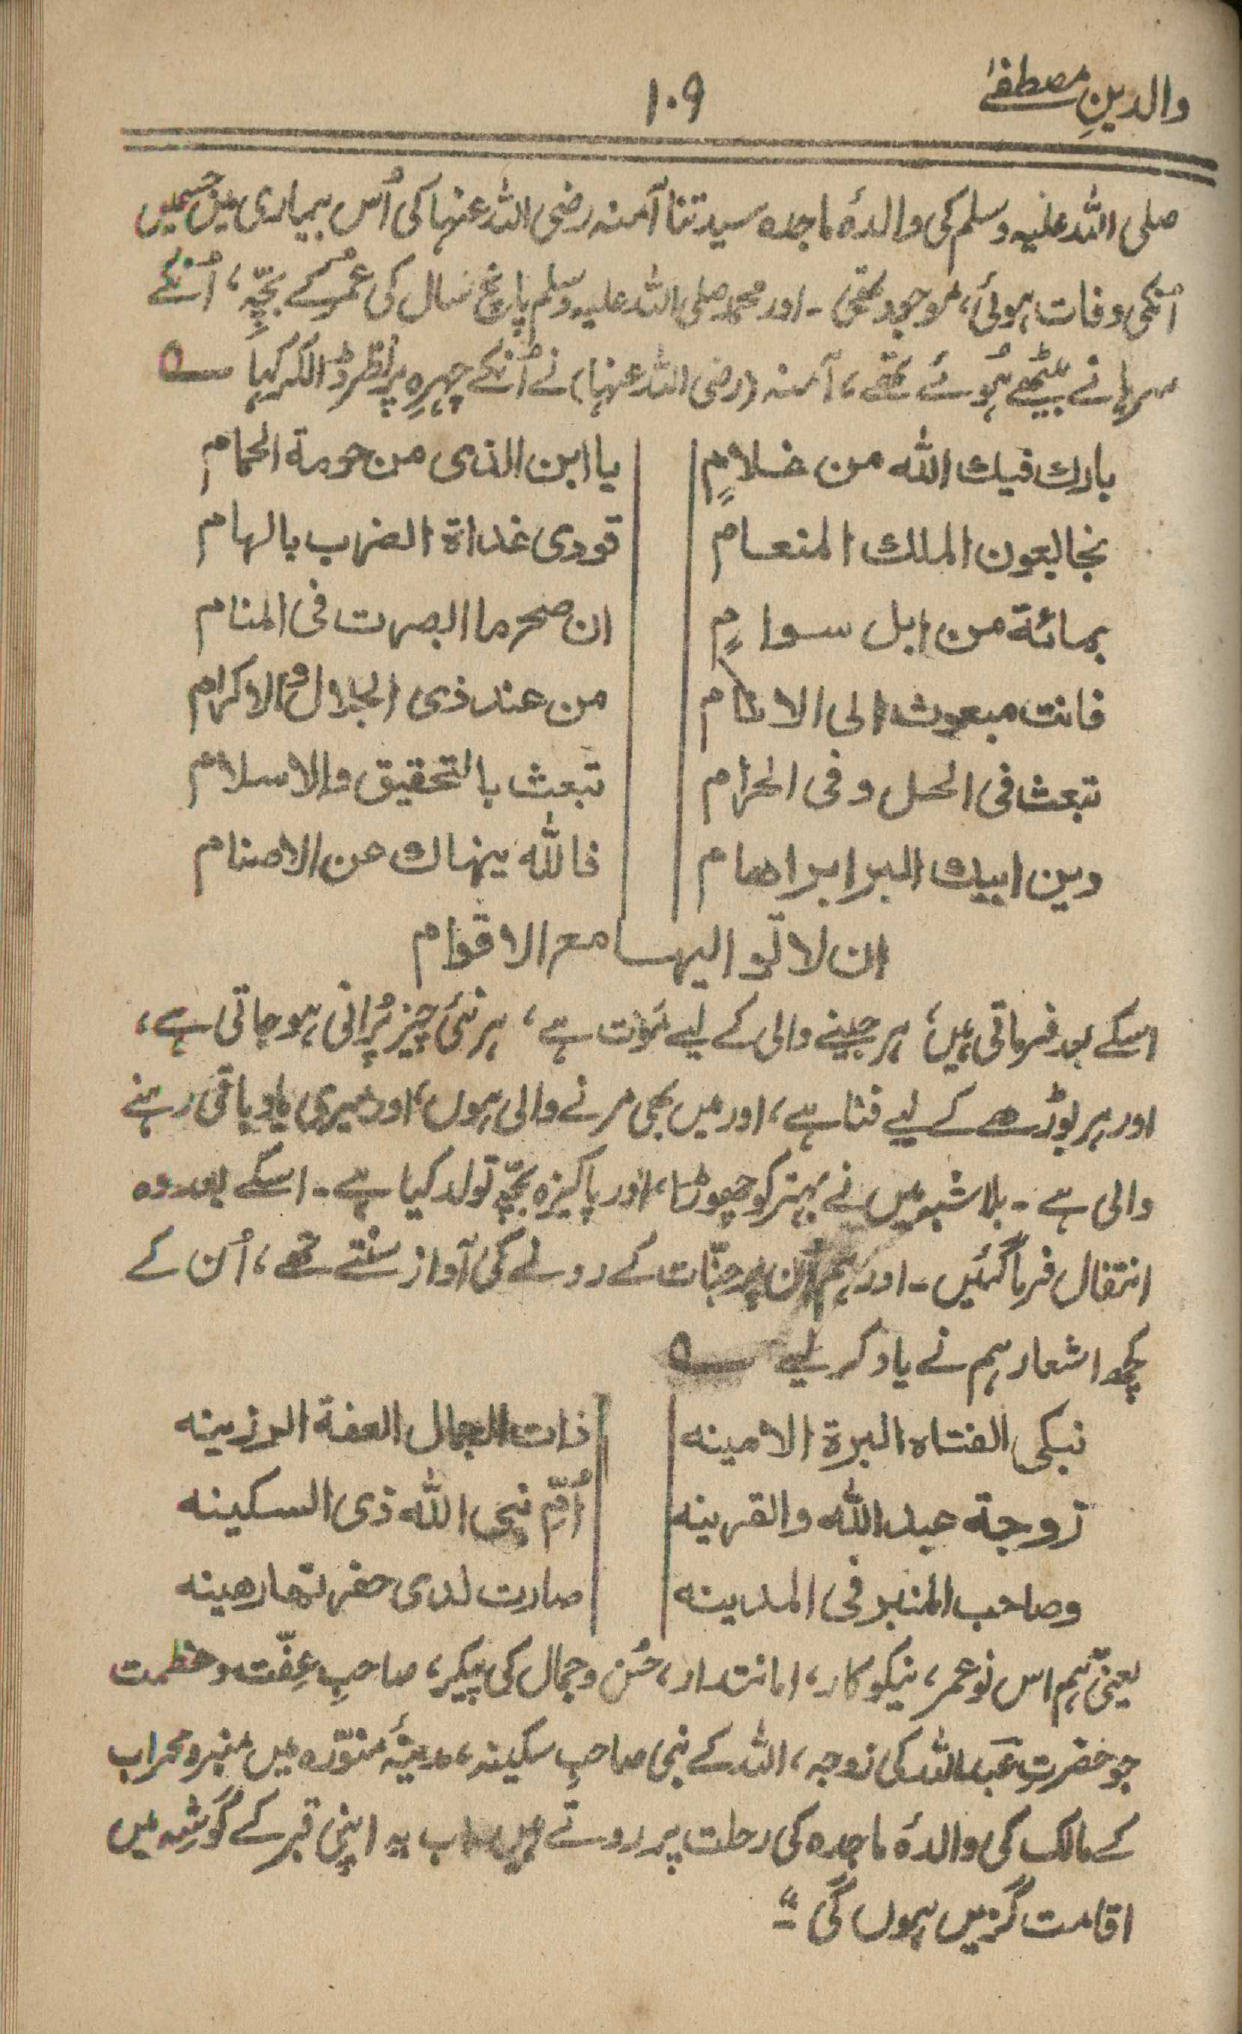 والدینِ مصطفےٰ
۱۰۹
صلی اللہ علیہ وسلم کی والدۂ ماجدہ سیدتنا آمنہ رضی اللہ عنہا کی اُس بیماری میں جسمیں
اُنکی وفات ہوئی، موجود تھی ۔ اور محمد صلی اللہ علیہ وسلم پانچ سال کی عمُر کے بچّے، اُنکے
سرہانے بیٹھے ہُوئے تھے، آمنہ (رضی اللہ عنہا) نے اُنکے چہرہ پر نظر ڈالکر کہا ؎
بارك فيك الله من غلامٍ | يا ابن الذى من حومة الحمام
نجا بعون الملك المنعام | فودى غداة الضرب بالسهام
بمائة من ابل سوامٍ | ان صح ما ابصرت فى المنام
فانت مبعوث الى الانام | من عند ذى الجلال والاكرام
تبعث فى الحل و فى الحرام | تبعث بالتحقيق والاسلام
دين ابيك البر ابراهام | فالله ينهاك عن الاصنام
ان لا تواليها مع الاقوام
اسکے بعد فرماتی ہیں، ہر جینے والی کے لیے مَوت ہے، ہر نئی چیز پُرانی ہو جاتی ہے،
اور ہر بوڑھے کے لیے فنا ہے، اور میں بھی مرنے والی ہوں، اور میری یاد باقی رہنے
والی ہے ۔ بلاشبہ میں نے بہتر کو چھوڑا، اور پاکیزہ بچّہ تولد کیا ہے ۔ اسکے بعد وہ
انتقال فرما گئیں ۔ اور ہم اُن پر جنّات کے رونے کی آواز سُنتے تھے، اُن کے
کچھ اشعار ہم نے یاد کر لیے ؎
نبكى الفتاه البرة الامينه | ذات الجمال العفة الرزينه
زوجة عبد الله والقرينه | اُمّ نبى الله ذى السكينه
وصاحب المنبر فى المدينه | صارت لدى حفرتها رهينه
یعنی ہم اس نوعمر، نیکوکار، امانتدار، حُسن و جمال کی پیکر، صاحبِ عِفّت و عظمت
جو حضرت عبد اللہ کی زوجہ، اللہ کے نبی صاحبِ سکینہ، مدینۂ منوّرہ میں منبر و محراب
کے مالک کی والدۂ ماجدہ کی رحلت پر روتے ہیں اب یہ اپنی قبر کے گوشہ میں
اقامت گزیں ہوں گی ۔"